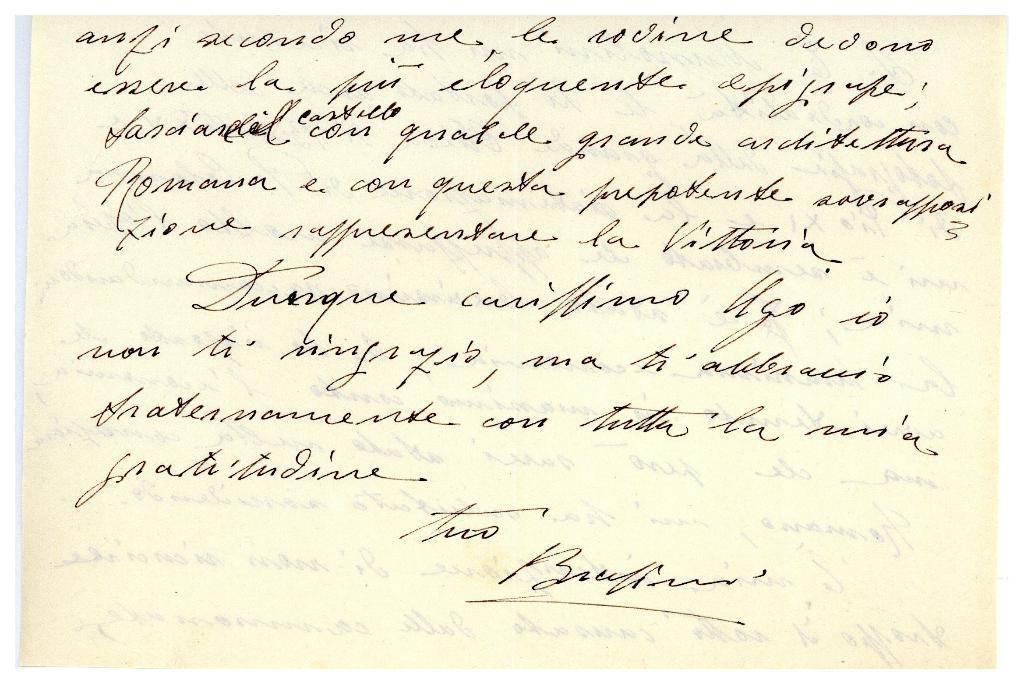 anzi secondo me, le rovine devono
essere la più eloquente epigrafe;
del castello
con qualche grande architettura
Romana e con questa prepotente sovrapposi
zione rappresentare la Vittoria.
Dunque carissimo Ugo io
non ti ringrazio, ma ti abbraccio
fraternamente con tutta la mia
gratitudine
tuo
Brasini